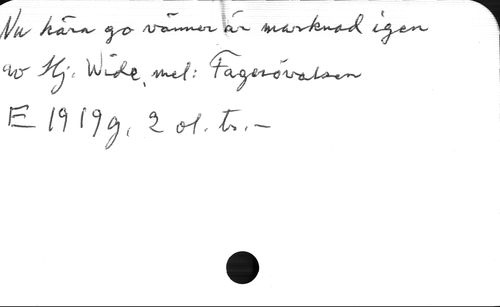 Nu kära go vänner är marknad igen
av Hj. Wide, mel: Fagerövalsen
E 1919g, 2 ol. tr. –